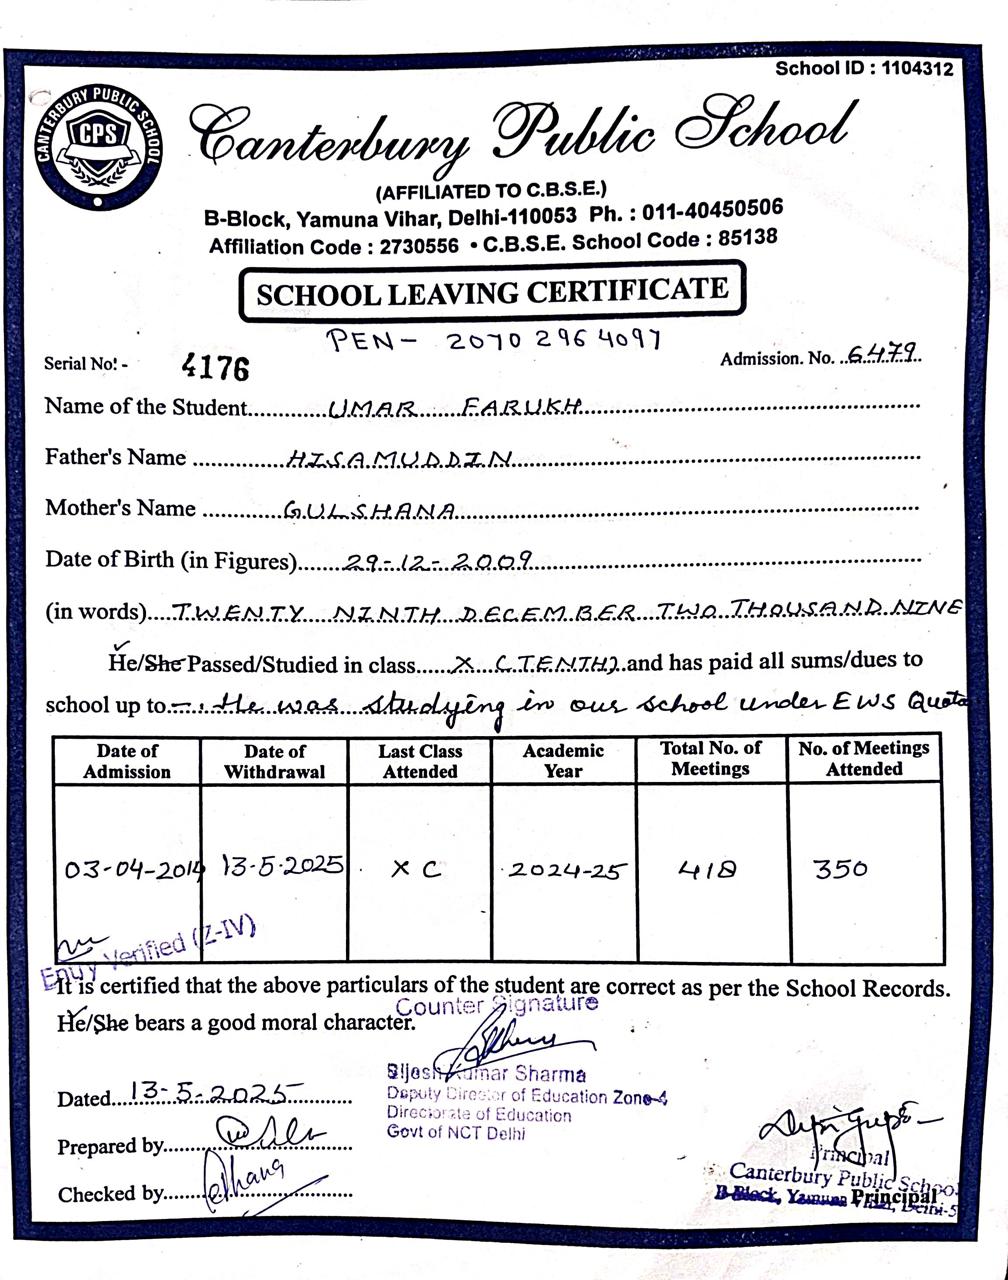 School ID : 1104312
CANTERBURY PUBLIC SCHOOL
CPS
Canterbury Public School
(AFFILIATED TO C.B.S.E.)
B-Block, Yamuna Vihar, Delhi-110053 Ph. : 011-40450506
Affiliation Code : 2730556 • C.B.S.E. School Code : 85138
SCHOOL LEAVING CERTIFICATE
PEN- 2070 296 4097
Serial No:- 4176 Admission. No. 6479
Name of the Student UMAR FARUKH
Father's Name HISAMUDDIN
Mother's Name GULSHANA
Date of Birth (in Figures) 29-12-2009
(in words) TWENTY NINTH DECEMBER TWO THOUSAND NINE
He/She Passed/Studied in class X (TENTH) and has paid all sums/dues to
school up to -. He was studying in our school under EWS Quota
Date of Admission Date of Withdrawal Last Class Attended Academic Year Total No. of Meetings No. of Meetings Attended
03-04-2014 13-5-2025 X C 2024-25 418 350
Entry Verified (Z-IV)
It is certified that the above particulars of the student are correct as per the School Records.
Counter Signature
He/She bears a good moral character.
Bijesh Kumar Sharma
Deputy Director of Education Zone-4
Directorate of Education
Govt of NCT Delhi
Dated 13-5-2025
Prepared by
Checked by
Principal
Canterbury Public School
B-Block, Yamuna Vihar, Delhi-5
Principal